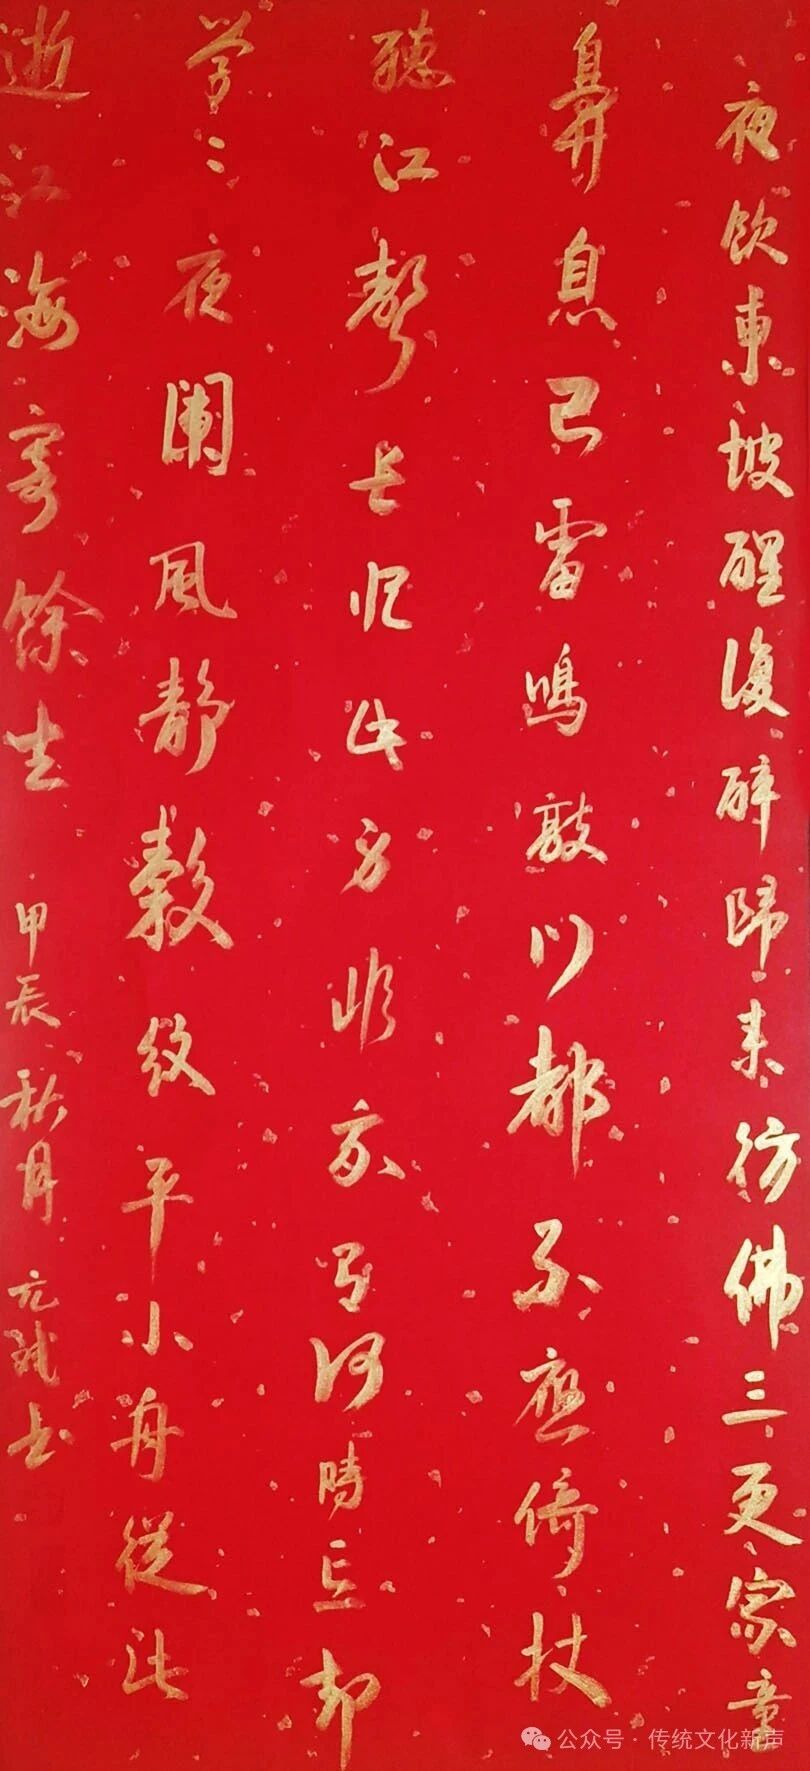 夜飲東坡醒復醉歸来彷佛三更家童
鼻息已雷鳴敲门都不應倚杖
聽江聲长恨此身非我有何時忘却
营々夜闌風静縠紋平小舟從此
逝江海寄餘生 甲辰秋月 元斌书
公众号·传统文化新声